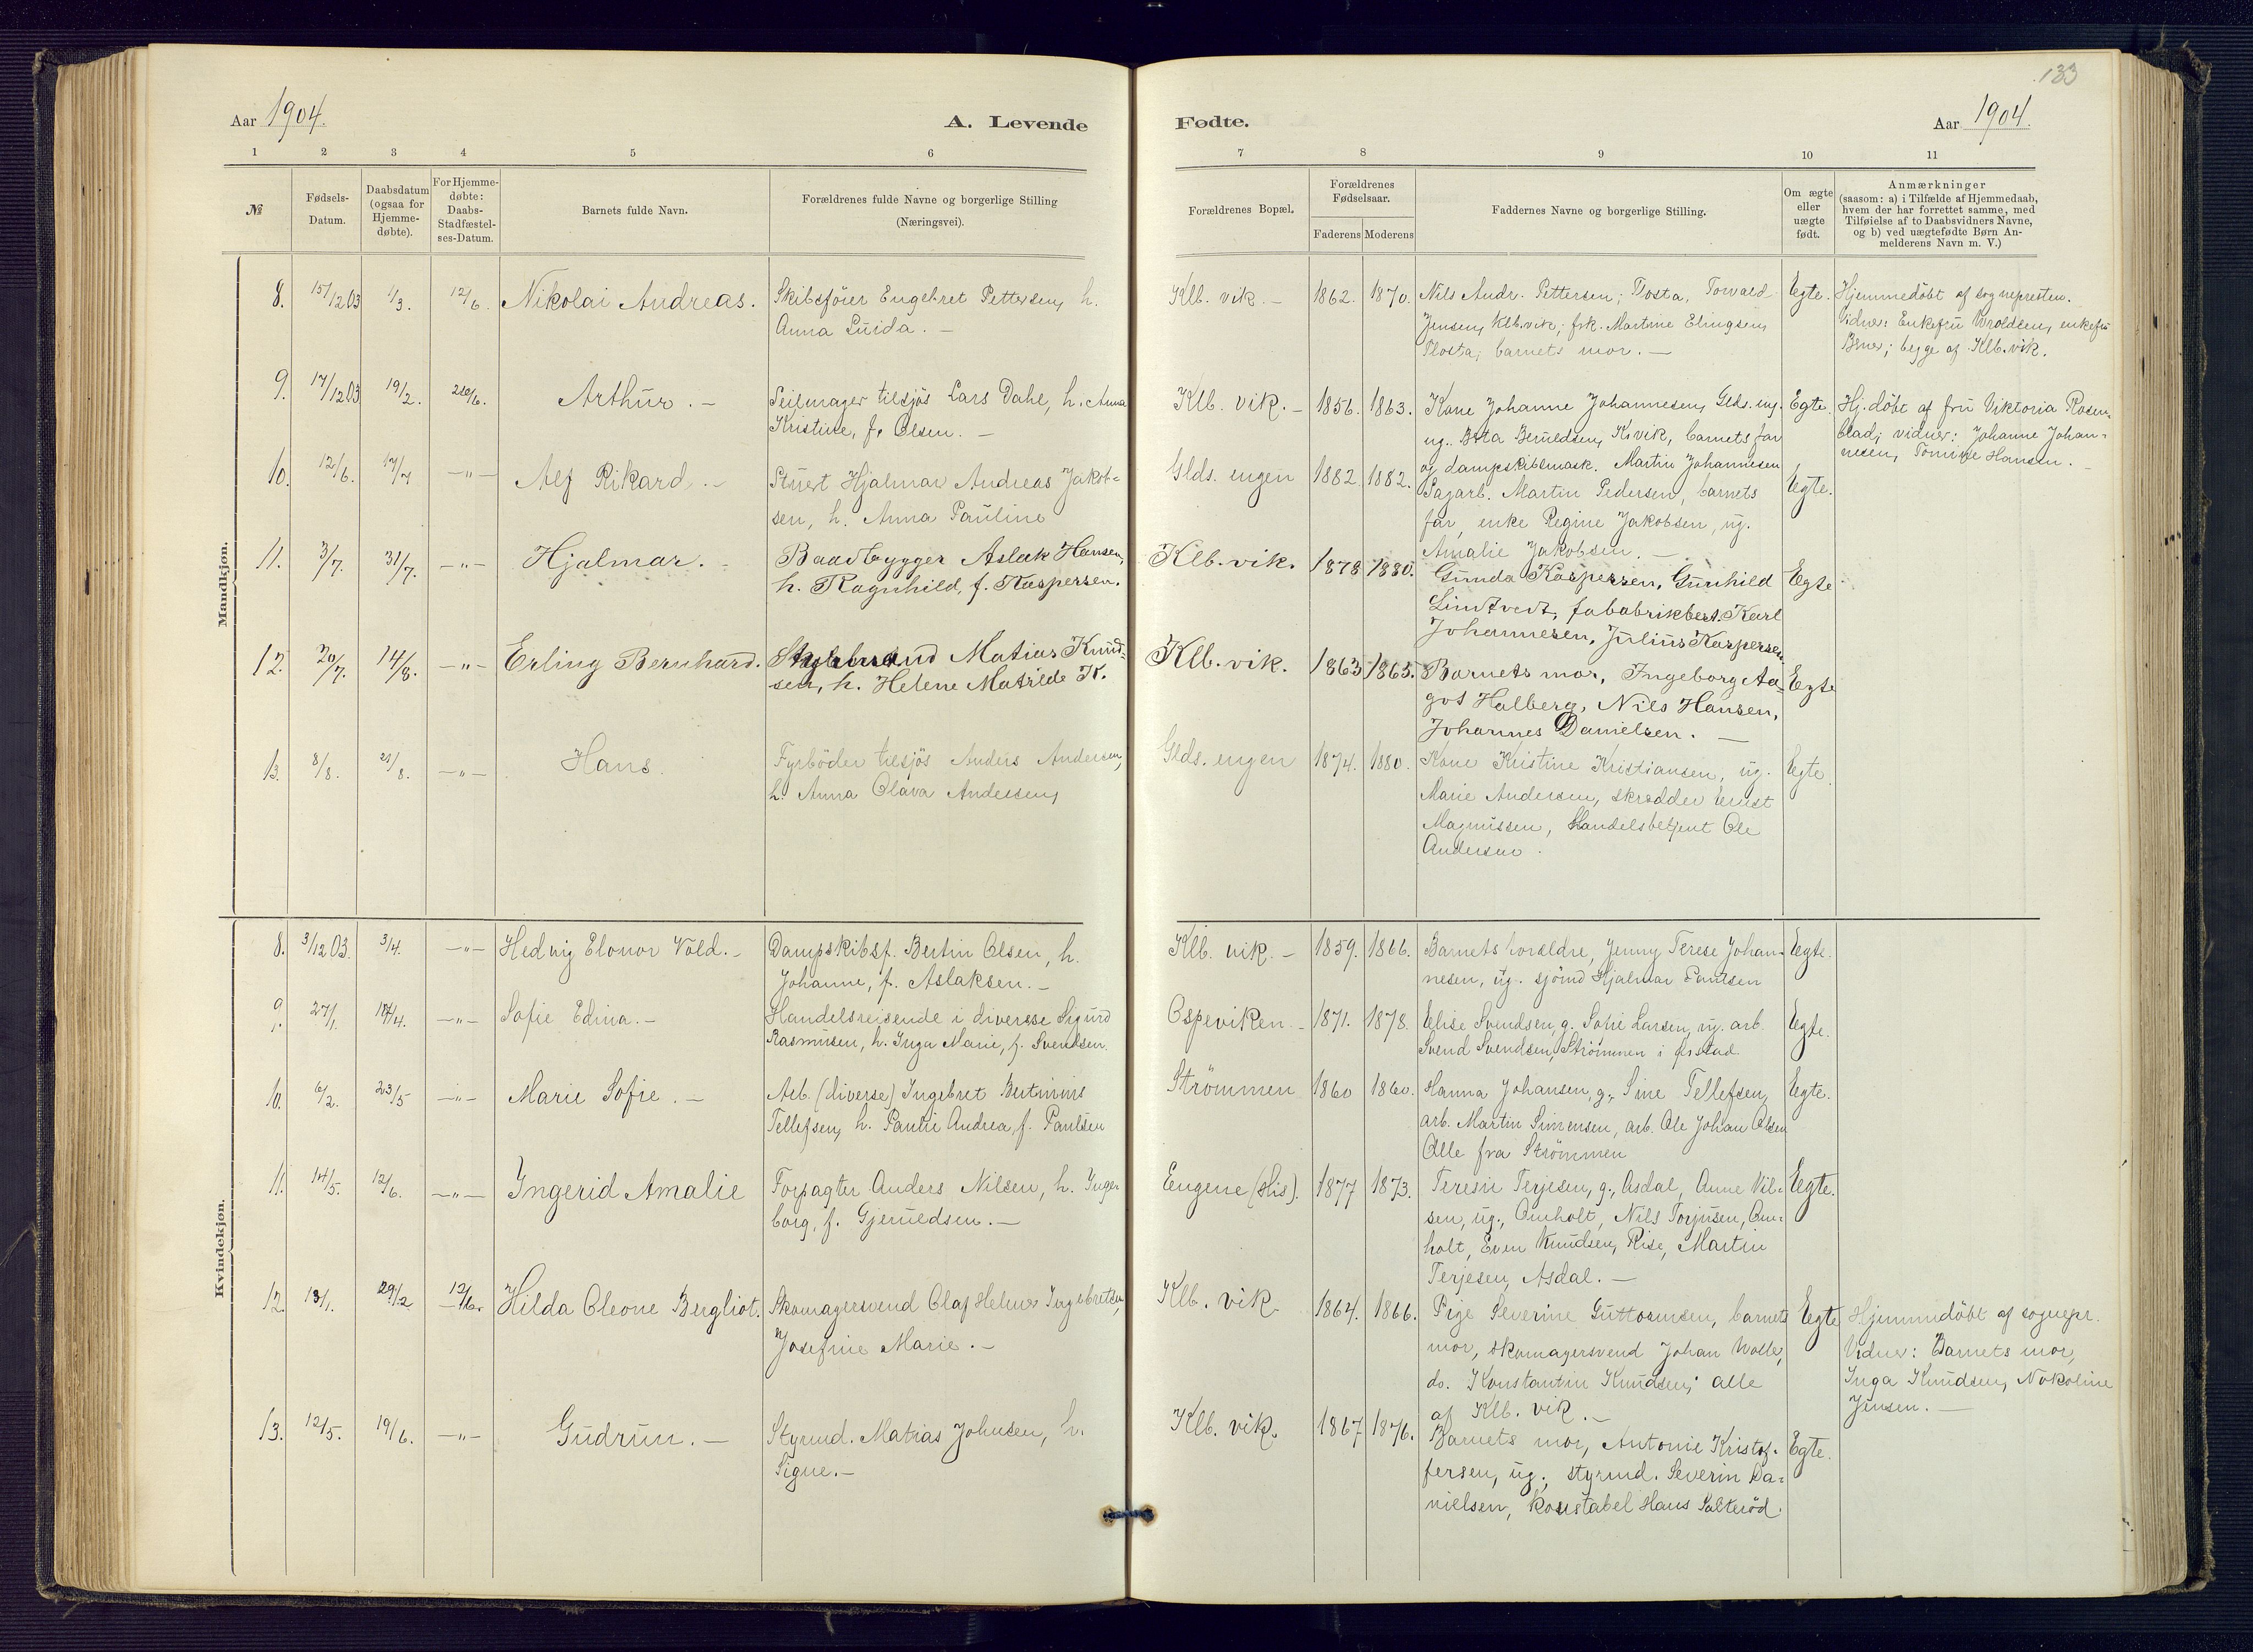 133
Aar 1904. A. Levende Fødte. Aar 1904.
1 2 3 4 5 6 7 8 9 10 11
№
Fødsels-
Datum.
Daabsdatum
(ogsaa for
Hjemme-
døbte).
For Hjemme-
døbte:
Daabs-
Stadfæstel-
ses-Datum.
Barnets fulde Navn.
Forældrenes fulde Navne og borgerlige Stilling
(Næringsvei).
Forældrenes Bopæl.
Forældrenes
Fødselsaar.
Faderens Moderens
Faddernes Navne og borgerlige Stilling.
Om ægte
eller
uægte
født.
Anmærkninger
(saasom: a) i Tilfælde af Hjemmedaab,
hvem der har forrettet samme, med
Tilføielse af to Daabsvidners Navne,
og b) ved uægtefødte Børn An-
melderens Navn m. V.)
Mandkjøn.
8. 15/12 03 1/3. 12/6. Nikolai Andreas.
Skibsfører Engebret Pettersen, h.
Anna Luida. —
Klb. vik. — 1862. 1870.
Nils Andr. Pettersen, Flosta, Torvald
Jensen, Klb.vik; frk. Martine Elingsen,
Flosta; barnets mor. —
Egte.
Hjemmedøbt af sognepresten.
Vidner: Enkefru Wroldsen, enkefru
begge af Klb.vik.
9. 17/12 03 19/2. 26/6. Arthur. —
Seilmager tilsjøs Lars Dahl, h. Anna
Kristine, f. Olsen. —
Klb. vik. — 1856. 1863.
Kone Johanne Johannesen, Glds. eng.
ug. Berta Beruldsen, K.vik, barnets far
og dampskibsmask. Martin Johannesen
Egte.
Hj.døbt af fru Viktoria Rosen-
blad; vidner: Johanne Johan-
nesen, Tomine Hansen. —
10. 12/6. 17/7 —"— Alf Rikard. —
Stuert Hjalmar Andreas Jakob-
sen, h. Anna Pauline
Glds. engen 1882. 1882.
Sagarb. Martin Pedersen, barnets
far, enke Regine Jakobsen, ug.
Amalie Jakobsen. —
Egte.
11. 3/7. 31/7. —"— Hjalmar. —
Baadbygger Aslak Hansen,
h. Ragnhild, f. Kaspersen.
Klb. vik. 1878 1880.
Gunda Kaspersen, Gunhild
Lindtvedt, fababrikbest. Karl
Johannesen, Julius Kaspersen.
Egte
12. 20/7. 14/8. —"— Erling Bernhard.
Styrmand Matias Knud-
sen, h. Helene Matilde K.
Klb. vik. 1863 1865.
Barnets mor, Ingeborg Aa-
got Halberg, Nils Hansen,
Johannes Danielsen. —
Egte
13. 8/8. 21/8. —"— Hans.
Fyrbøder tilsjøs Anders Andersen,
h. Anna Olava Andersen,
Glds. engen 1874. 1880.
Kone Kristine Kristiansen, ug.
Marie Andersen, skrædder Ernst
Magnussen, Handelsbetjent Ole
Andersen.
Egte.
Kvindekjøn.
8. 3/12 03. 3/4. —"— Hedvig Elonor Vold. —
Dampskibsf. Bertin Olsen, h.
Johanne, f. Aslaksen. —
Klb. vik. — 1859. 1866.
Barnets forældre, Jenny Terese Johan-
nesen, ug. sjømd Hjalmar Paulsen
Egte.
9. 27/1. 17/4. —"— Sofie Edina. —
Handelsreisende i diverse Sigurd
Rasmussen, h. Inga Marie, f. Svendsen.
Ospeviken. — 1871. 1878.
Elise Svendsen, g. Sofie Larsen, ug. arb.
Svend Svendsen, Strømmen i Øistad.
Egte.
10. 6/2. 23/5 —"— Marie Sofie. —
Arb. (diverse) Ingebret Bertinius
Tellefsen, h. Paulie Andrea, f. Paulsen
Strømmen 1860 1860.
Hanna Johansen, g., Sine Tellefsen,
arb. Martin Simensen, arb. Ole Johan Olsen
Alle fra Strømmen
Egte.
11. 14/5. 12/6. —"— Ingerid Amalie
Forpagter Anders Nilsen, h. Inge-
borg, f. Gjeruldsen. —
Engene (His). 1877 1873.
Teresie Terjesen, g., Asdal, Anne Nil-
sen, ug., Omholt, Nils Torjusen, Om-
holt, Even Knudsen, Rise, Martin
Terjesen, Asdal. —
Egte.
12. 13/1. 29/2 12/6. Hilda Oleone Bergliot.
Skomagersvend Olaf Helmer Ingebretsen,
Josefine Marie. —
Klb. vik. 1864. 1866.
Pige Severine Guttormsen, barnets
mor, skomagersvend Johan Wolle,
do. Konstantin Knudsen; alle
af Klb. vik. —
Egte
Hjemmedøbt af sognepr.
Vidner: Barnets mor,
Inga Knudsen, Nokoline
Jensen. —
13. 12/5. 19/6. —"— Gudrun. —
Styrmd. Matias Johnsen, h.
Signe. —
Klb. vik. 1867 1876.
Barnets mor, Antonie Kristof-
fersen, ug., styrmd. Severin Da-
nielsen, konstabel Hans Salterød.
Egte.